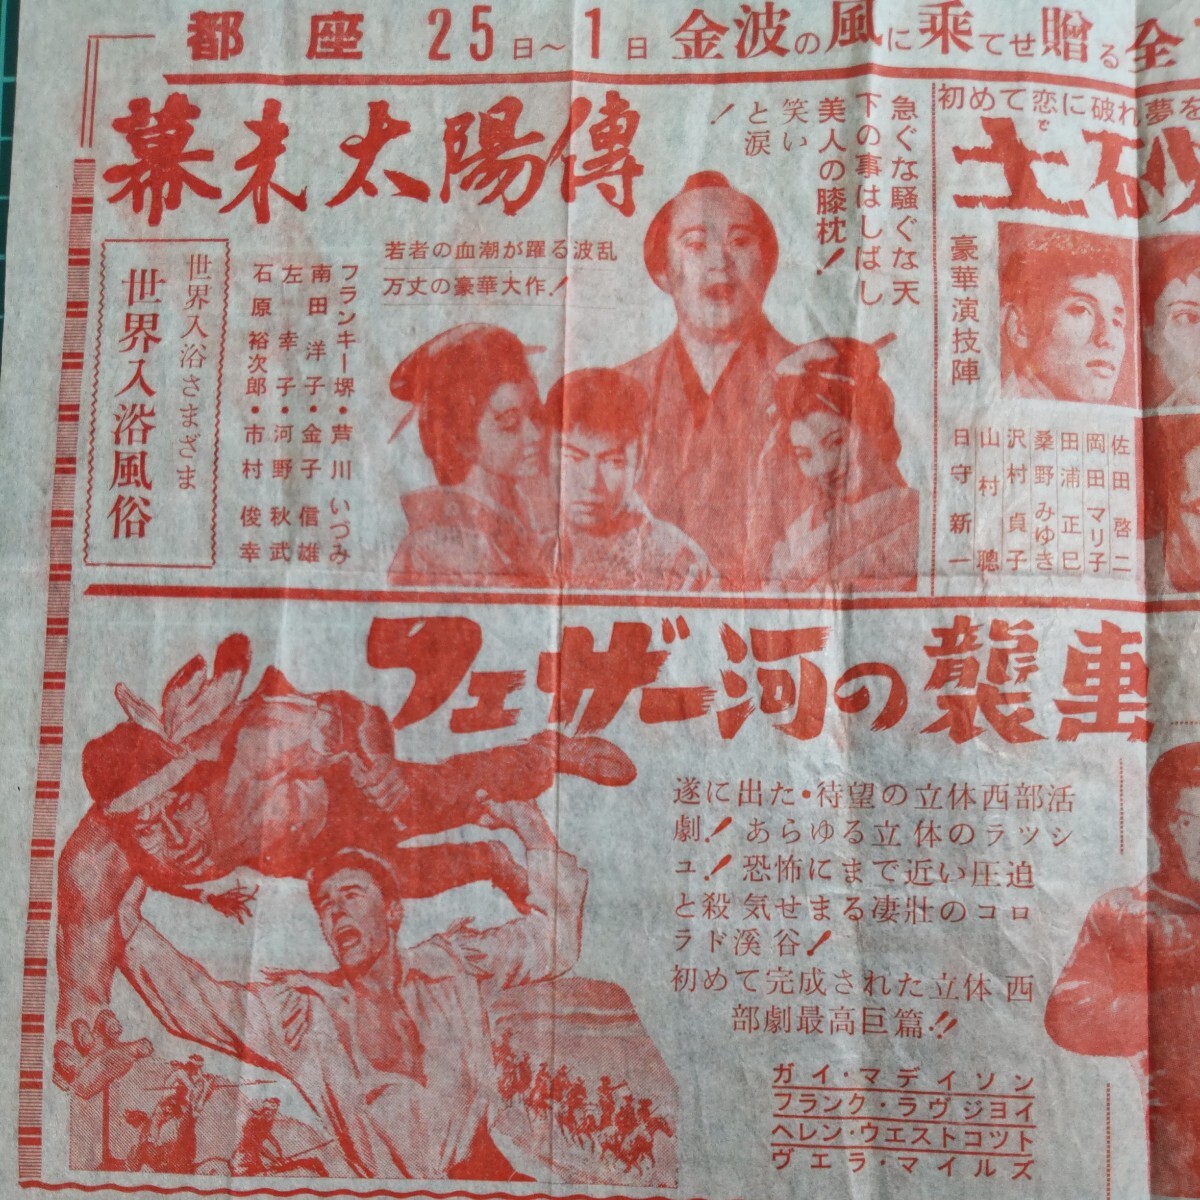 都座 25日〜1日 金波の風に乗てせ贈る全
幕末太陽傳
急ぐな騒ぐな天
下の事はしばし
美人の膝枕！
笑い
と涙
！
若者の血潮が躍る波乱
万丈の豪華大作！
フランキー堺・芦川いづみ
南田洋子・金子信雄
左幸子・河野秋武
石原裕次郎・市村俊幸
世界入浴さまざま
世界入浴風俗
初めて恋に破れ夢を
土砂
豪華演技陣
佐田啓二
岡田マリ子
田浦正巳
桑野みゆき
沢村貞子
山村聰
日守新一
フェザー河の襲撃
遂に出た・待望の立体西部活
劇！あらゆる立体のラッシ
ュ！恐怖にまで近い圧迫
と殺気せまる凄壯のコロ
ラド溪谷！
初めて完成された立体西
部劇最高巨篇！！
ガイ・マデイソン
フランク・ラヴジョイ
ヘレン・ウエストコット
ヴェラ・マイルズ